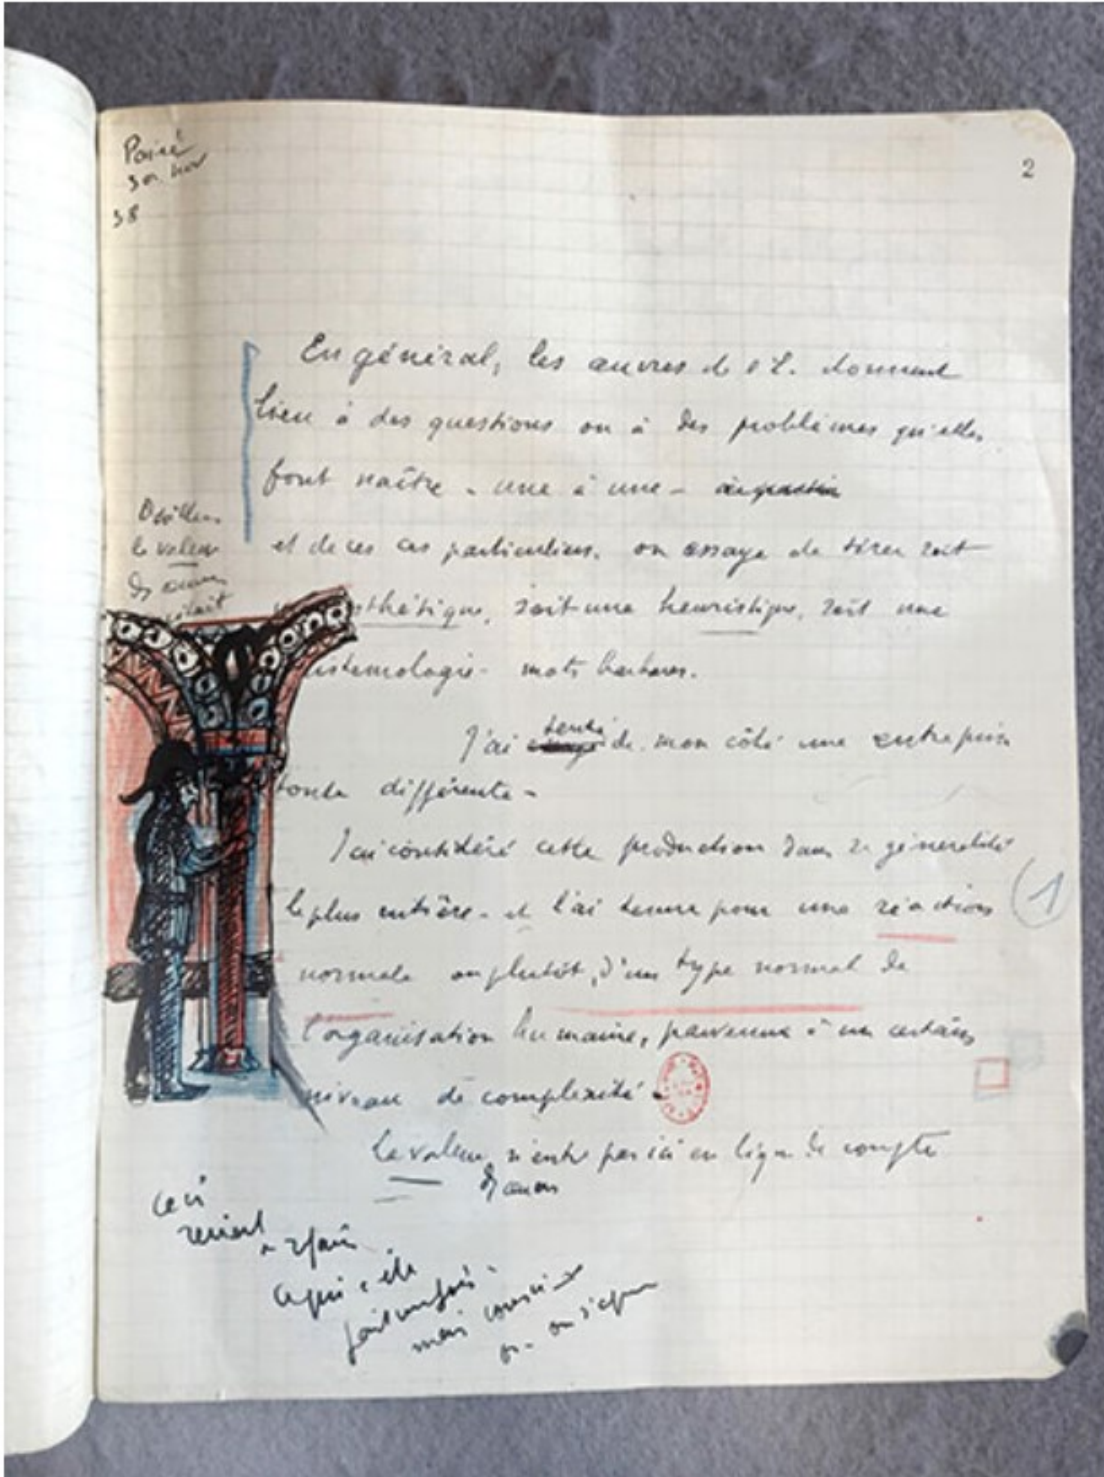 2
38
En général, les œuvres de l'E. donnent
lieu à des questions ou à des problèmes qu'elles
font naître - une à une -
et de ces cas particuliers, on essaye de tirer soit
esthétique, soit une heuristique, soit une
épistemologie - mots barbares.
J'ai tenté de mon côté une entreprise
toute différente -
J'ai considéré cette production dans sa généralité
la plus entière - et l'ai tenue pour une réaction
normale ou plutôt, d'un type normal de
l'organisation humaine, parvenue à un certain
niveau de complexité -
La valeur n'entre pas ici en ligne de compte
la valeur
ceci
revient
à refaire
ce qui a été
mais
(1)